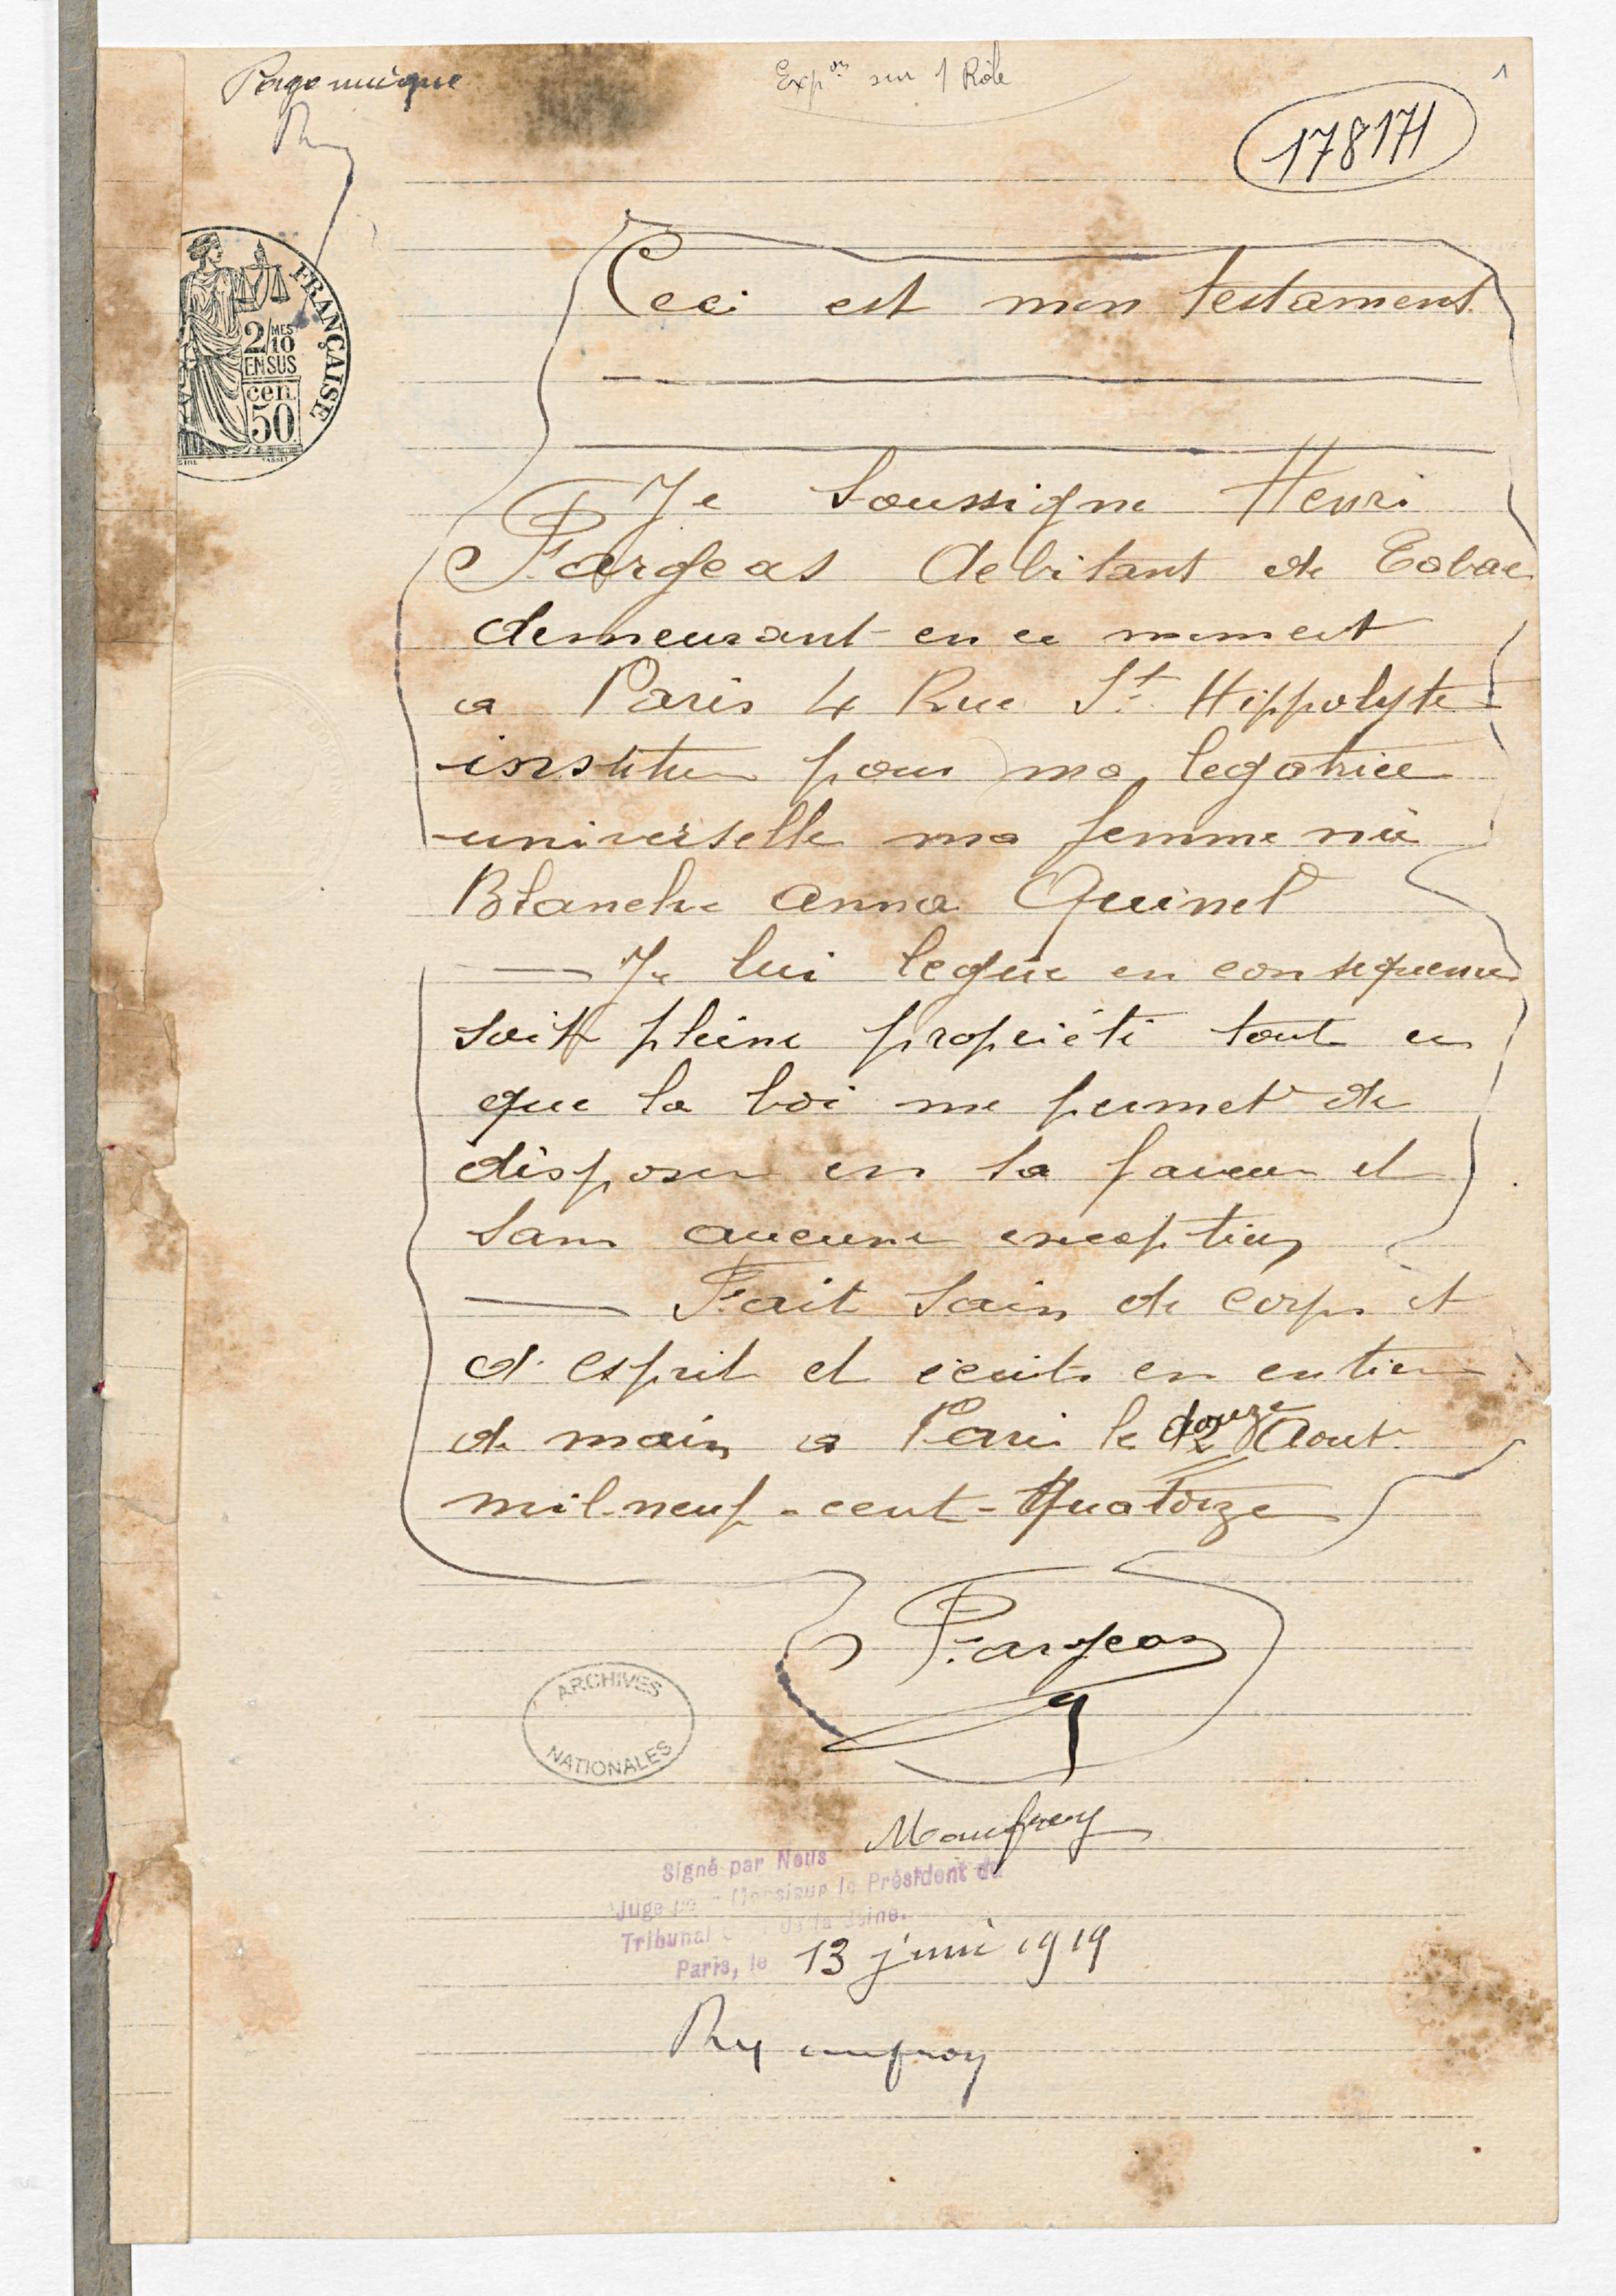 Page unique
Exp^on sur 1 Rôle
1
178171
FRANÇAISE
2/10 MES
EN SUS
cen.
50
Ceci est mon testament
Je soussigne Henri
Fargeas debitant de Tabac
demeurant en ce moment
a Paris 4 Rue St. Hippolyte
institue pour ma legatrice
universelle ma femme née
Blanche anna Quinet
Je lui legue en consequence
soit pleine propriété tout ce
que la loi me permet de
disposer en sa faveur et
sans aucune exception
Fait sain de corps et
d'esprit et écrit en entier
de main a Paris le douze Aout
mil-neuf-cent-Quatorze
Fargeas
ARCHIVES
NATIONALES
Signé par Nous
Juge Monsieur le Président du
Tribunal de la Seine.
Paris, le 13 juin 1919